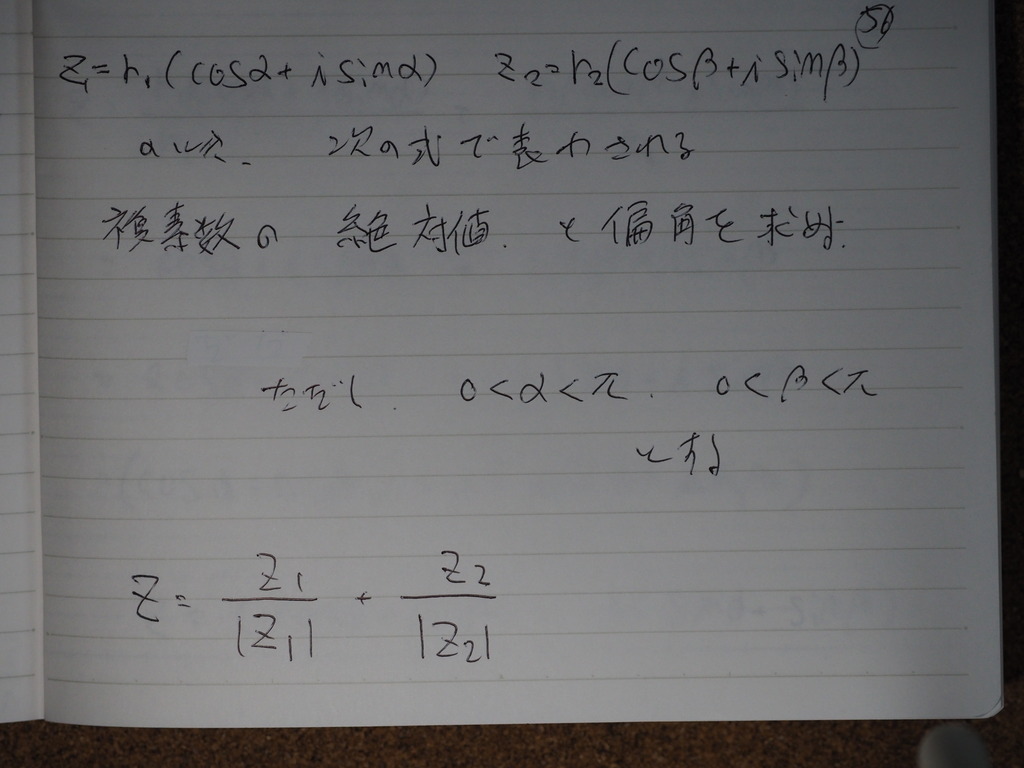 56
z₁=r₁(cosα+isinα) z₂=r₂(cosβ+isinβ)
のとき. 次の式で表わされる
複素数の 絶対値. と偏角を求めよ.
ただし. 0<α<π. 0<β<π
とする
Z = Z₁/|Z₁| + Z₂/|Z₂|